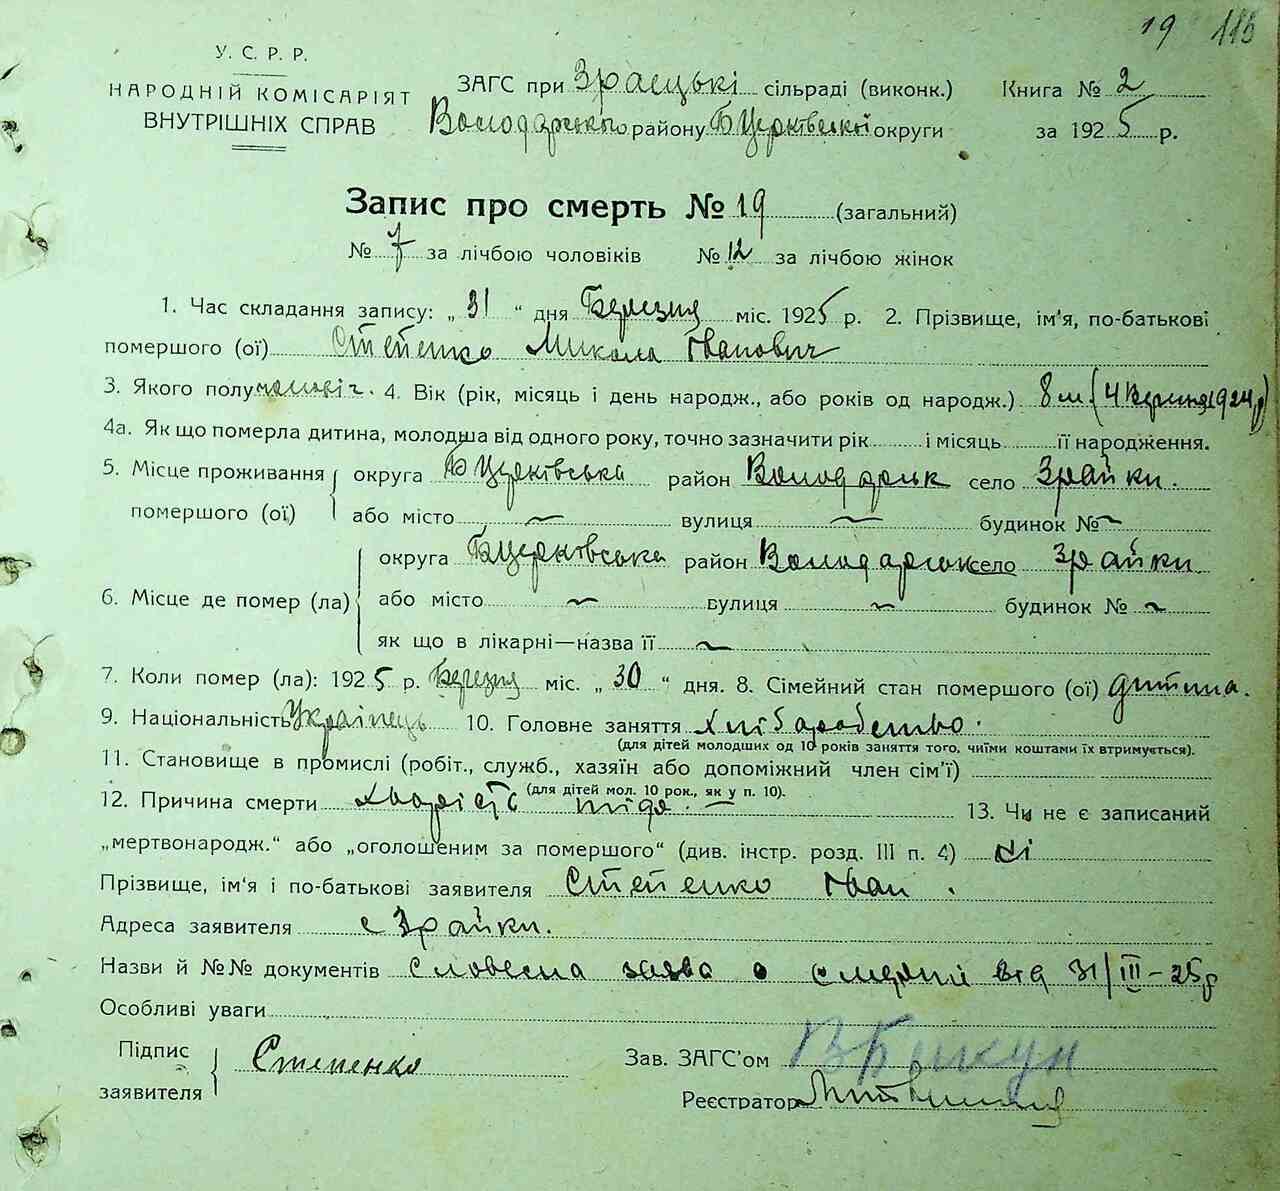 19 116
У. С. Р. Р.
НАРОДНІЙ КОМІСАРІЯТ
ВНУТРІШНІХ СПРАВ
ЗАГС при Зраєцькі сільраді (виконк.) Книга № 2
Володарського району БЦерківської округи за 1925 р.
Запис про смерть № 19 (загальний)
№ 7 за лічбою чоловіків № 12 за лічбою жінок
1. Час складання запису: „ 31 “ дня Березня міс. 1925 р. 2. Прізвище, ім'я, по-батькові
помершого (ої) Степенко Микола Іванович
3. Якого полу чоловіч. 4. Вік (рік, місяць і день народж., або років од народж.) 8 м (4 1924 р)
4а. Як що померла дитина, молодша від одного року, точно зазначити рік і місяць її народження.
5. Місце проживання помершого (ої) округа БЦерківська район Володарськ село Зрайки.
або місто — вулиця — будинок № —
6. Місце де помер (ла) округа БЦерківська район Володарськ село Зрайки
або місто — вулиця — будинок № —
як що в лікарні—назва її —
7. Коли помер (ла): 1925 р. Березня міс. „ 30 “ дня. 8. Сімейний стан помершого (ої) дитина.
9. Національність Українець 10. Головне заняття Хліборобство.
(для дітей молодших од 10 років заняття того, чиїми коштами їх втримується).
11. Становище в промислі (робіт., служб., хазяїн або допоміжний член сім'ї)
(для дітей мол. 10 рок., як у п. 10).
12. Причина смерти 13. Чи не є записаний
„мертвонародж.“ або „оголошеним за помершого“ (див. інстр. розд. III п. 4) ні
Прізвище, ім'я і по-батькові заявителя Степенко Іван.
Адреса заявителя с Зрайки.
Назви й №№ документів словесна заява о смерті від 31/III–25 р
Особливі уваги
Підпис заявителя Степенко Зав. ЗАГС'ом В Бикун
Реєстратор